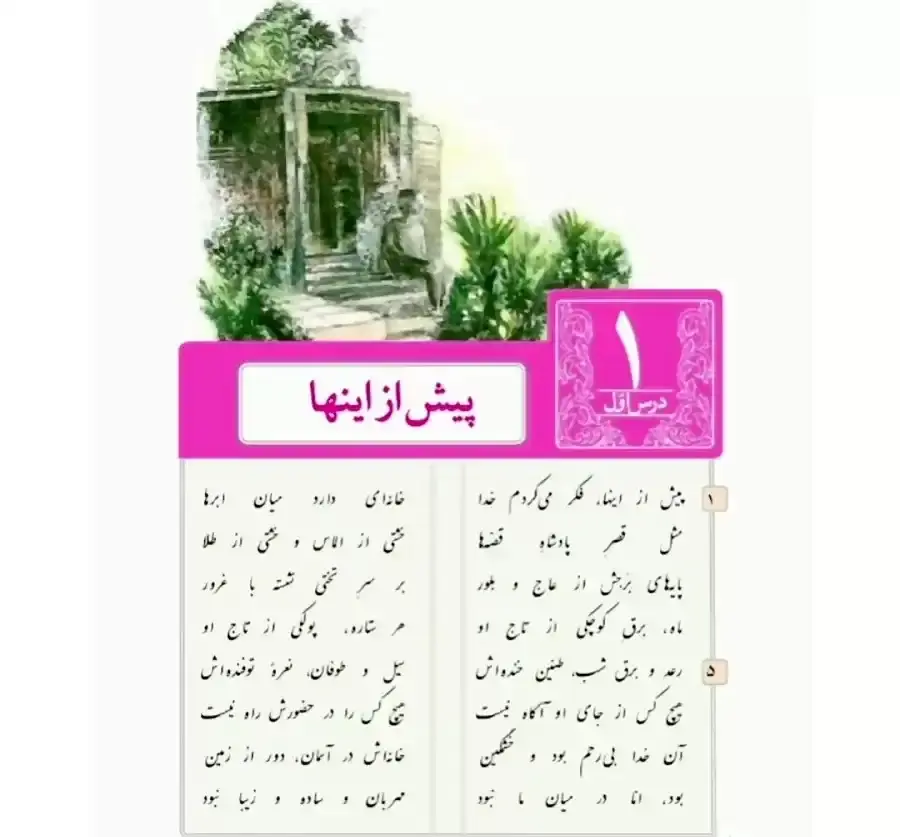 ۱
درس اوّل
پیش از اینها
۱ پیش از اینها، فکر می‌کردم خدا خانه‌ای دارد میان ابرها
مثل قصر پادشاهِ قصّه‌ها خشتی از الماس و خشتی از طلا
پایه‌های بُرجش از عاج و بلور بر سرِ تختی نشسته با غرور
ماه، برقِ کوچکی از تاج او هر ستاره، پولکی از تاج او
۵ رعد و برق شب، طنین خنده‌اش سیل و طوفان، نعرهٔ توفنده‌اش
هیچ کس از جای او آگاه نیست هیچ کس را در حضورش راه نیست
آن خدا بی‌رحم بود و خشمگین خانه‌اش در آسمان، دور از زمین
بود، امّا در میان ما نبود مهربان و ساده و زیبا نبود